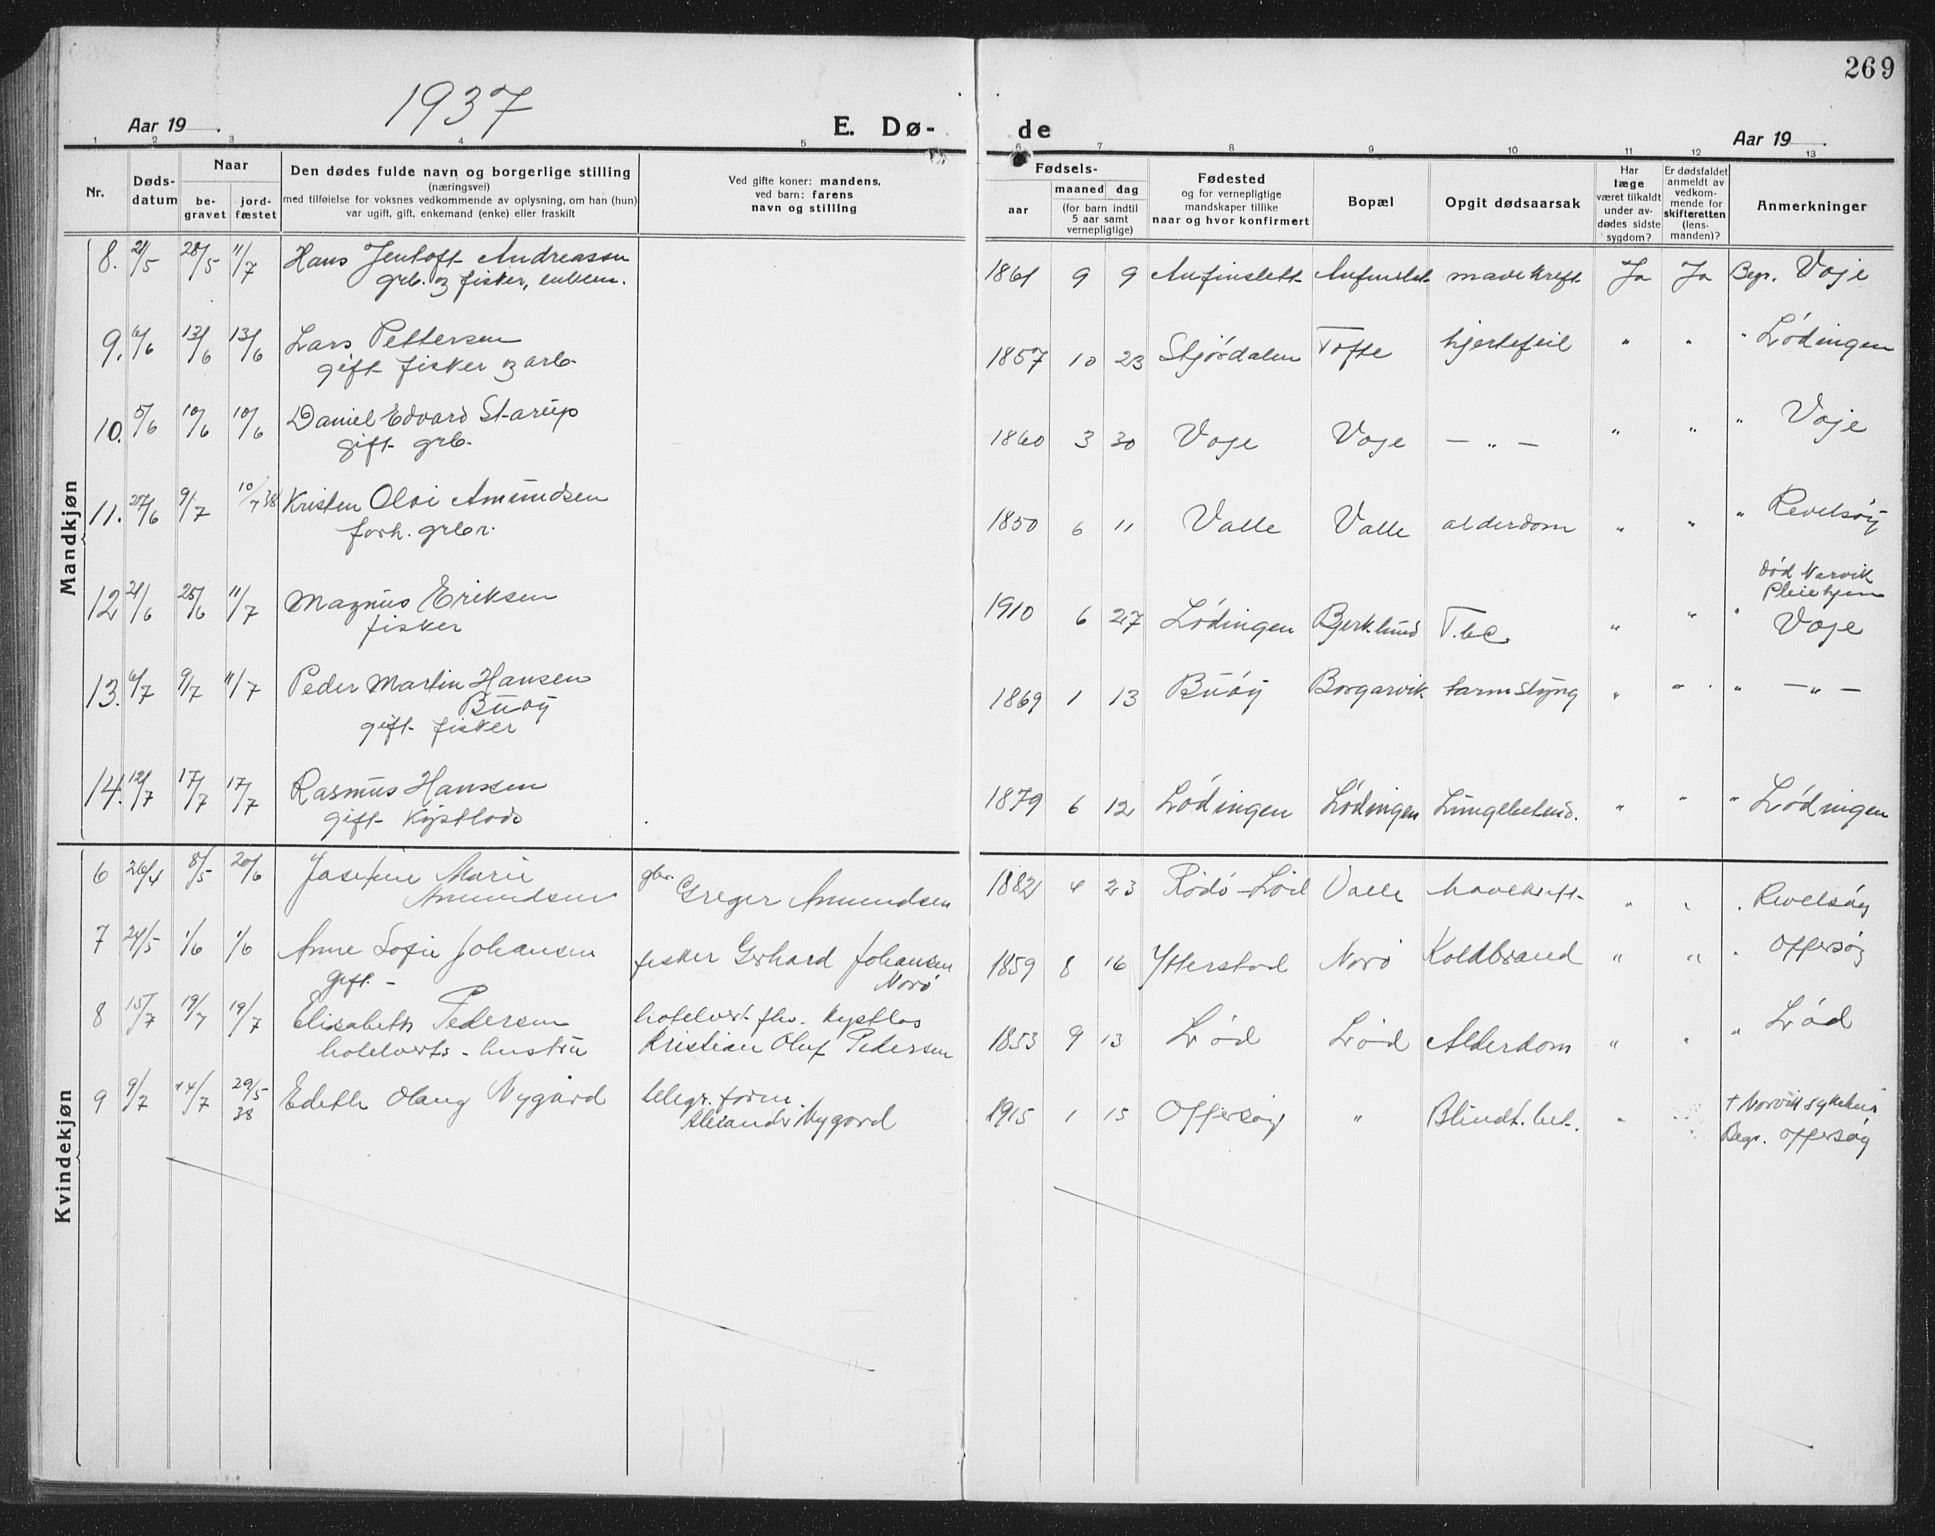 269
1937
Aar 19
E. Dø-
de
Aar 19
1 2 3 4 5 6 7 8 9 10 11 12 13
Nr.
Døds-
datum
Naar
be-
gravet
jord-
fæstet
Den dødes fulde navn og borgerlige stilling
(næringsvei)
med tilføielse for voksnes vedkommende av oplysning, om han (hun)
var ugift, gift, enkemand (enke) eller fraskilt
Ved gifte koner: mandens,
ved barn: farens
navn og stilling
Fødsels-
aar
maaned dag
(for barn indtil
5 aar samt
vernepligtige)
Fødested
og for vernepligtige
mandskaper tillike
naar og hvor konfirmert
Bopæl
Opgit dødsaarsak
Har
læge
været tilkaldt
under av-
dødes sidste
sygdom?
Er dødsfaldet
anmeldt av
vedkom-
mende for
skifteretten
(lens-
manden)?
Anmerkninger
Mandkjøn
8. 21/5 28/5 11/7 Hans Jentoft Andreassen 1861 9 9 Anfinslett Anfinslet mavekreft Ja Ja Begr. Voje
grb. og fisker, enkem.
9. 6/6 13/6 13/6 Lars Pettersen 1857 10 23 Stjørdalen Tofte hjertefeil " " " Lødingen
gift fisker og arb.
10. 5/6 10/6 10/6 Daniel Edvard Starup 1860 3 30 Voje Voje — " — " " " Voje
gift grb.
11. 27/6 9/7 10/7 38 Kristen Olai Amundsen 1850 6 11 Valle Valle alderdom " " " Revelsøy
forh. grbr.
12 21/6 25/6 11/7 Magnus Eriksen 1910 6 27 Lødingen Bjerklund T.bc. " " " død Narvik
Pleiehjem
Voje
fisker
13. 6/7 9/7 11/7 Peder Martin Hansen 1869 1 13 Buøy Borgarvik tarmslyng " " " — " —
Buøy
gift fisker
14. 12/7 17/7 17/7 Rasmus Hanssen 1879 6 12 Lødingen Lødingen Lungebetend. " " " Lødingen
gift Kystlods
Kvindekjøn
6 26/4 8/5 20/6 Josefine Marie gbr. 1882 4 23 Rødø - Lød Valle mavekreft " " " Revelsøy
Amundsen Greger Amundsen
7 24/5 1/6 1/6 Anne Sofie Johansen fisker Gerhard Johansen 1859 8 16 Ytterstad Norø Koldbrand " " " Offersøy
gift. - Norø
8 15/7 19/7 19/7 Elisabeth Pedersen hotelvert fhv. kystlos 1853 9 13 Lød Lød Alderdom " " " Lød
hotelverts - hustru Kristian Oluf Pedersen
9 9/7 14/7 29/5 38 Edeth Olaug Nygård telegr. form. 1915 1 15 Offersøy " Blindt. bet. " † Narvik sykehus
Begr. Offersøy
Alexander Nygård